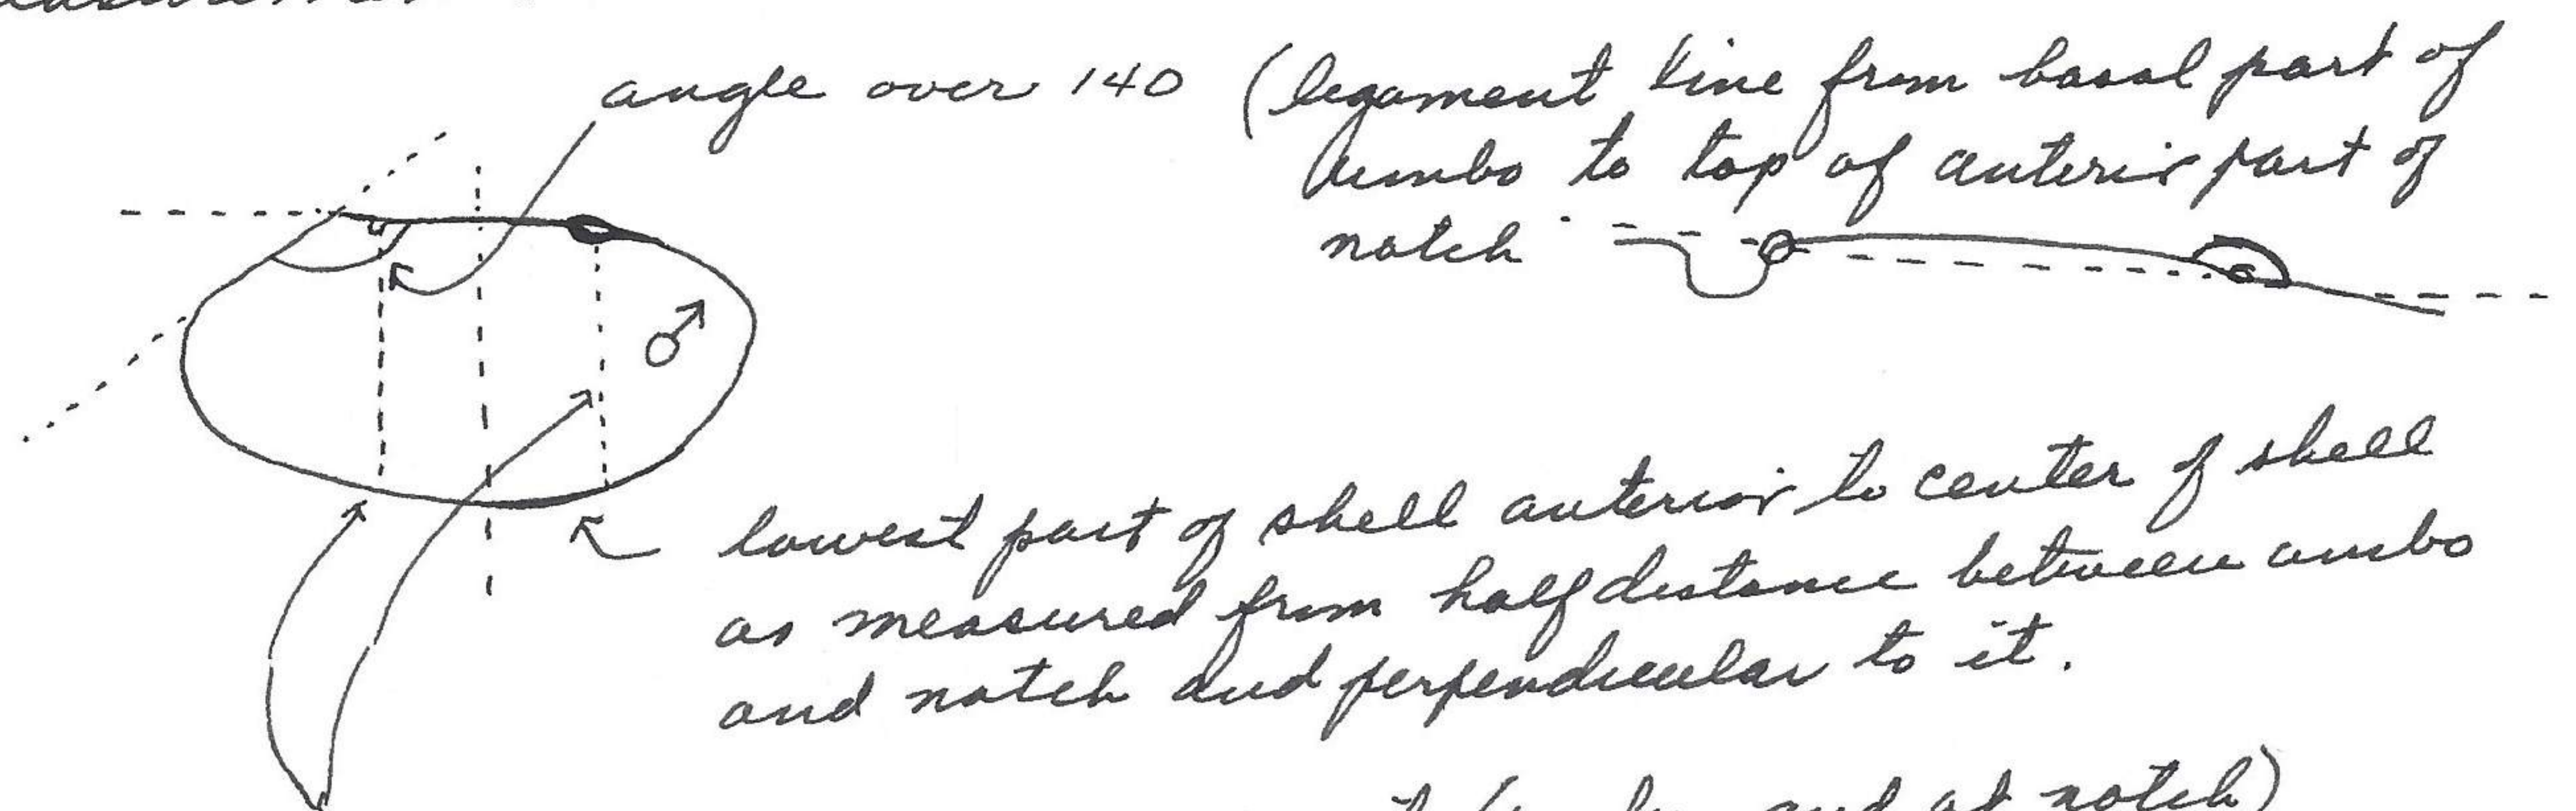 angle over 140 (ligament line from basal part of
umbo to top of anterior part of
notch
♂
lowest part of shell anterior to center of shell
as measured from half distance between umbo
and notch and perpendicular to it.
and at notch)